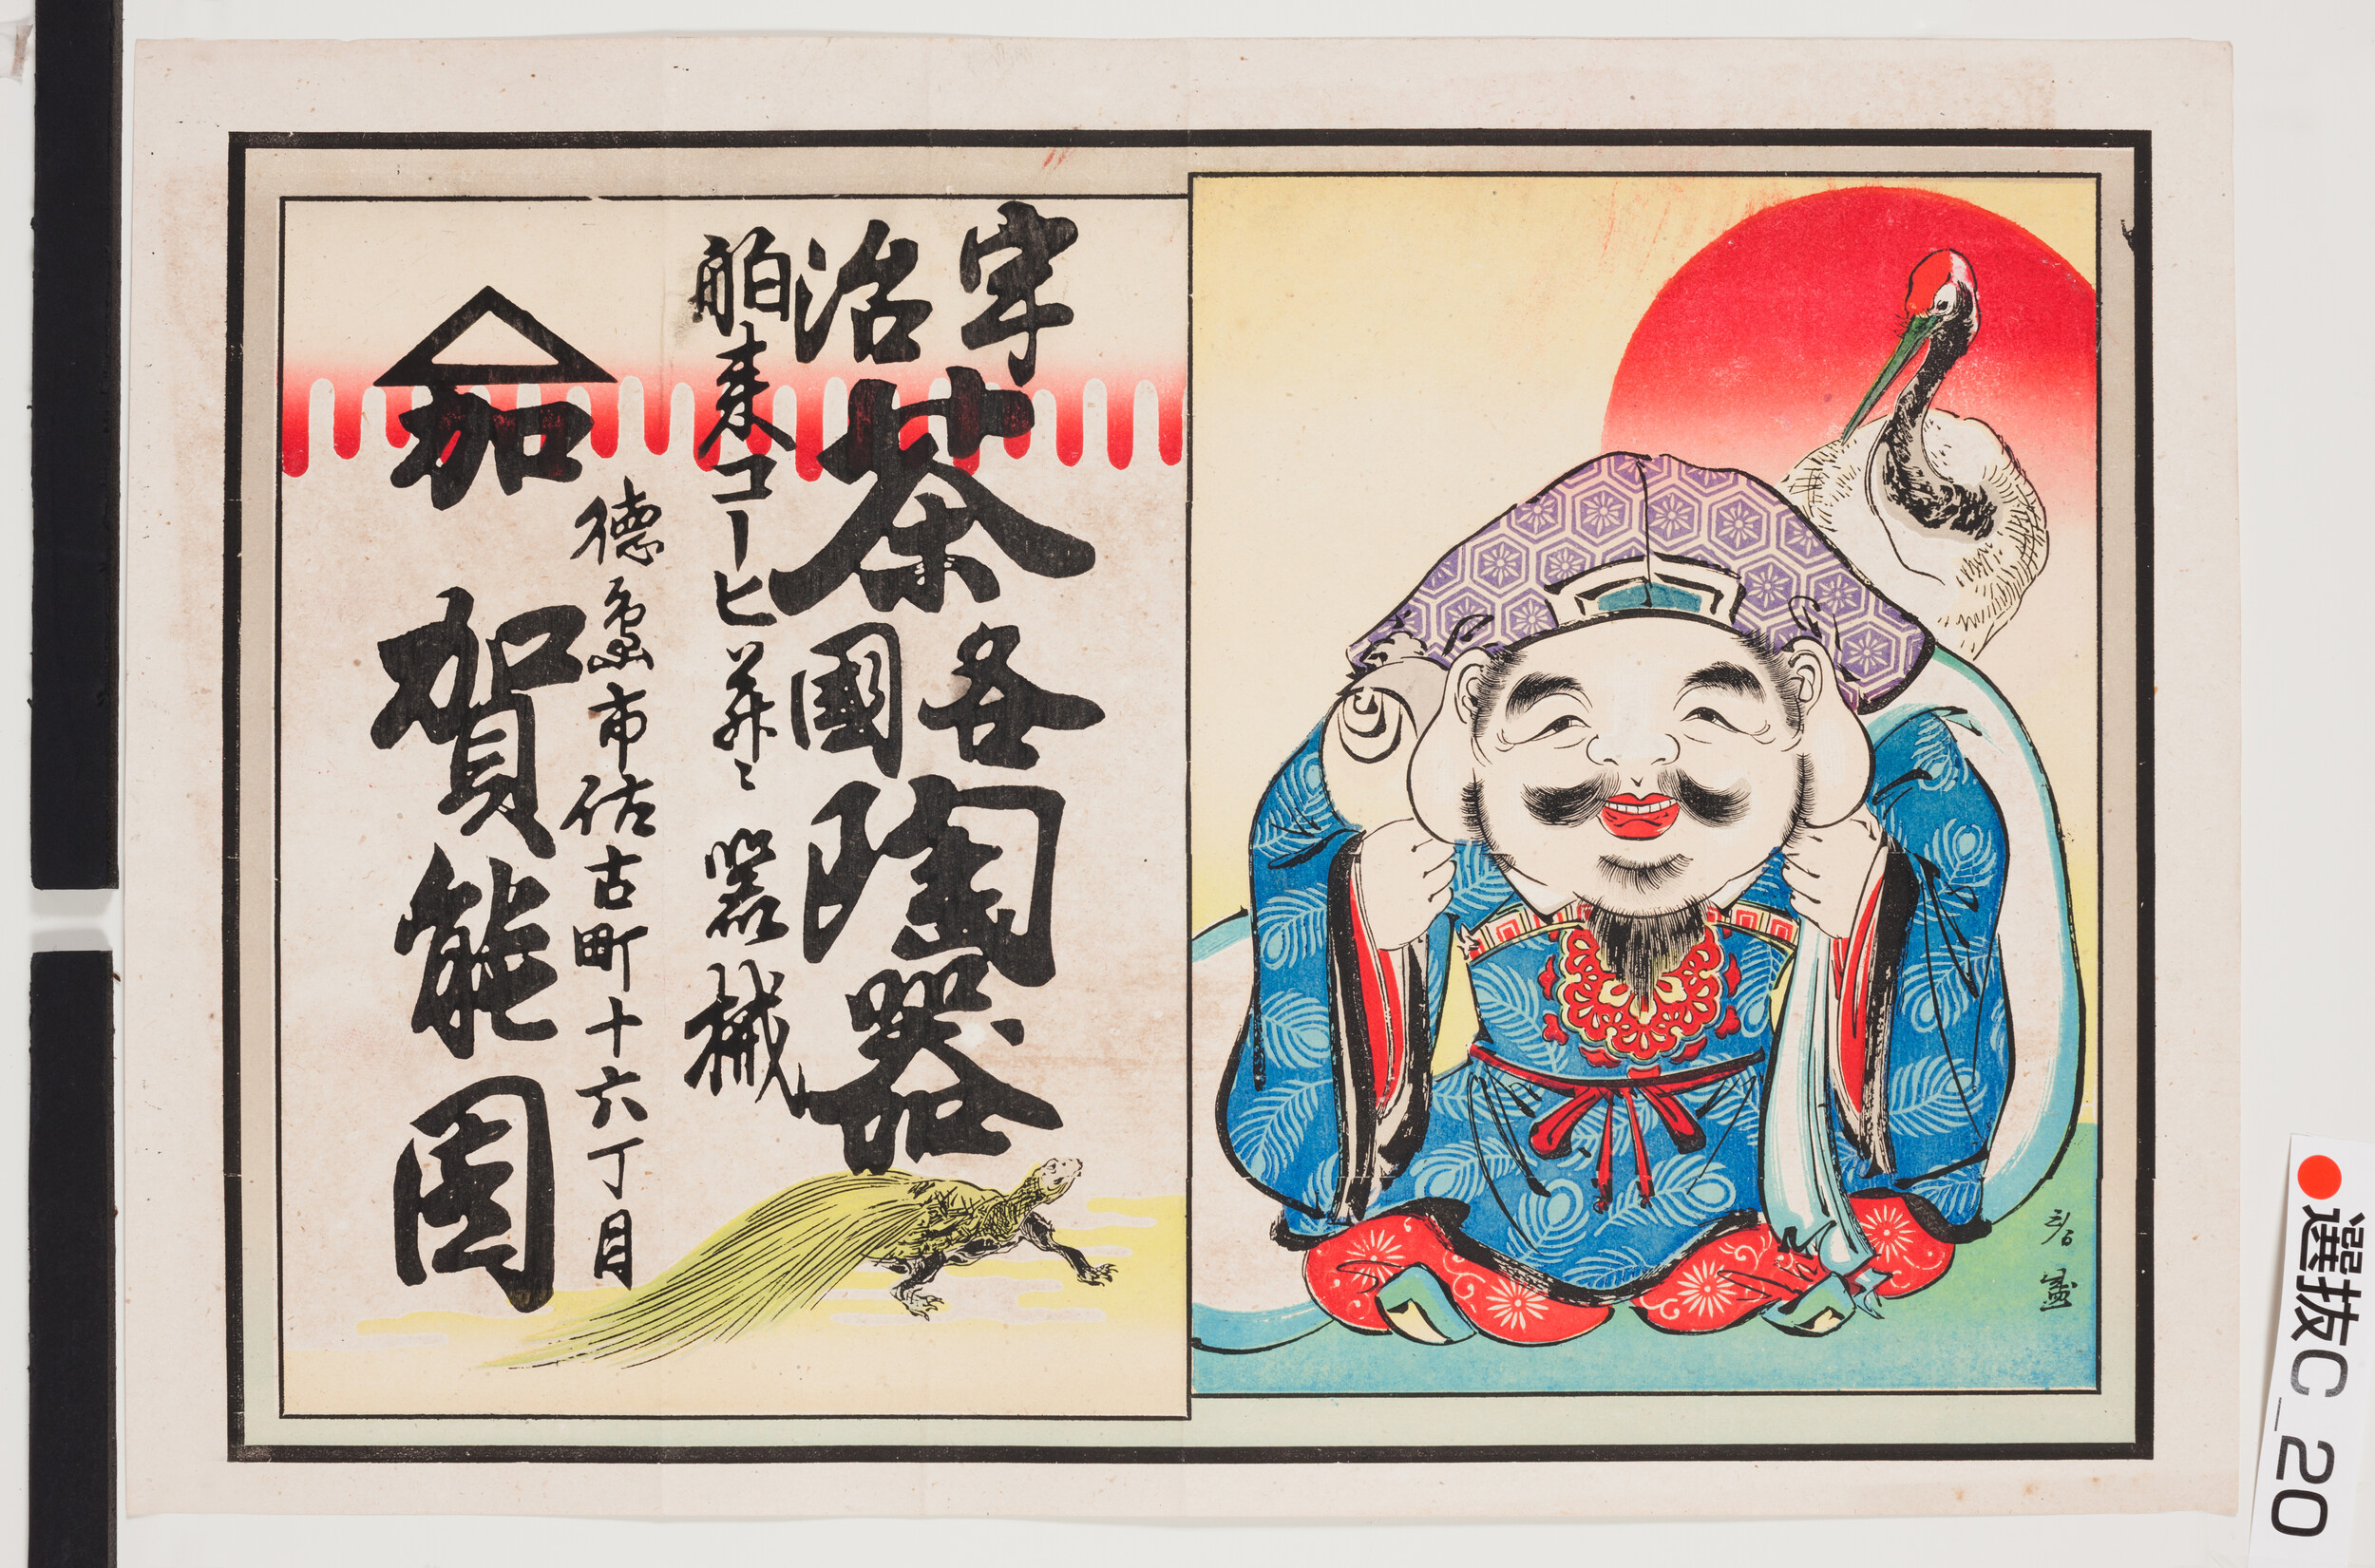 宇治茶各國陶器
舶来コーヒ并ニ器械
徳島市佐古町十六丁目
加
加賀能園
選抜C_20